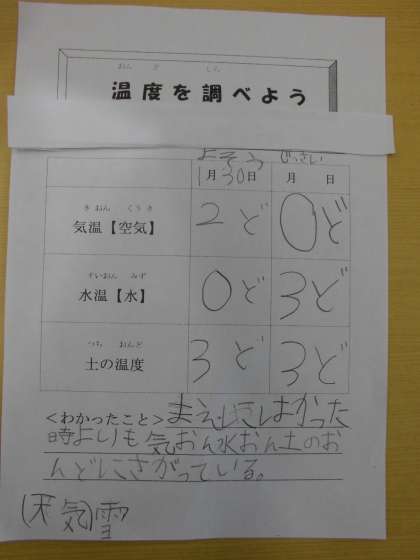 おん ど しら
温度を調べよう
よそう じっさい
1月30日 月 日
きおん くうき
気温【空気】 2ど 0ど
すいおん みず
水温【水】 0ど 3ど
つち おんど
土の温度 3ど 3ど
<わかったこと>まえしきはかった
時よりも気おん水おん土のお
んどにさがっている。
(天気)雪